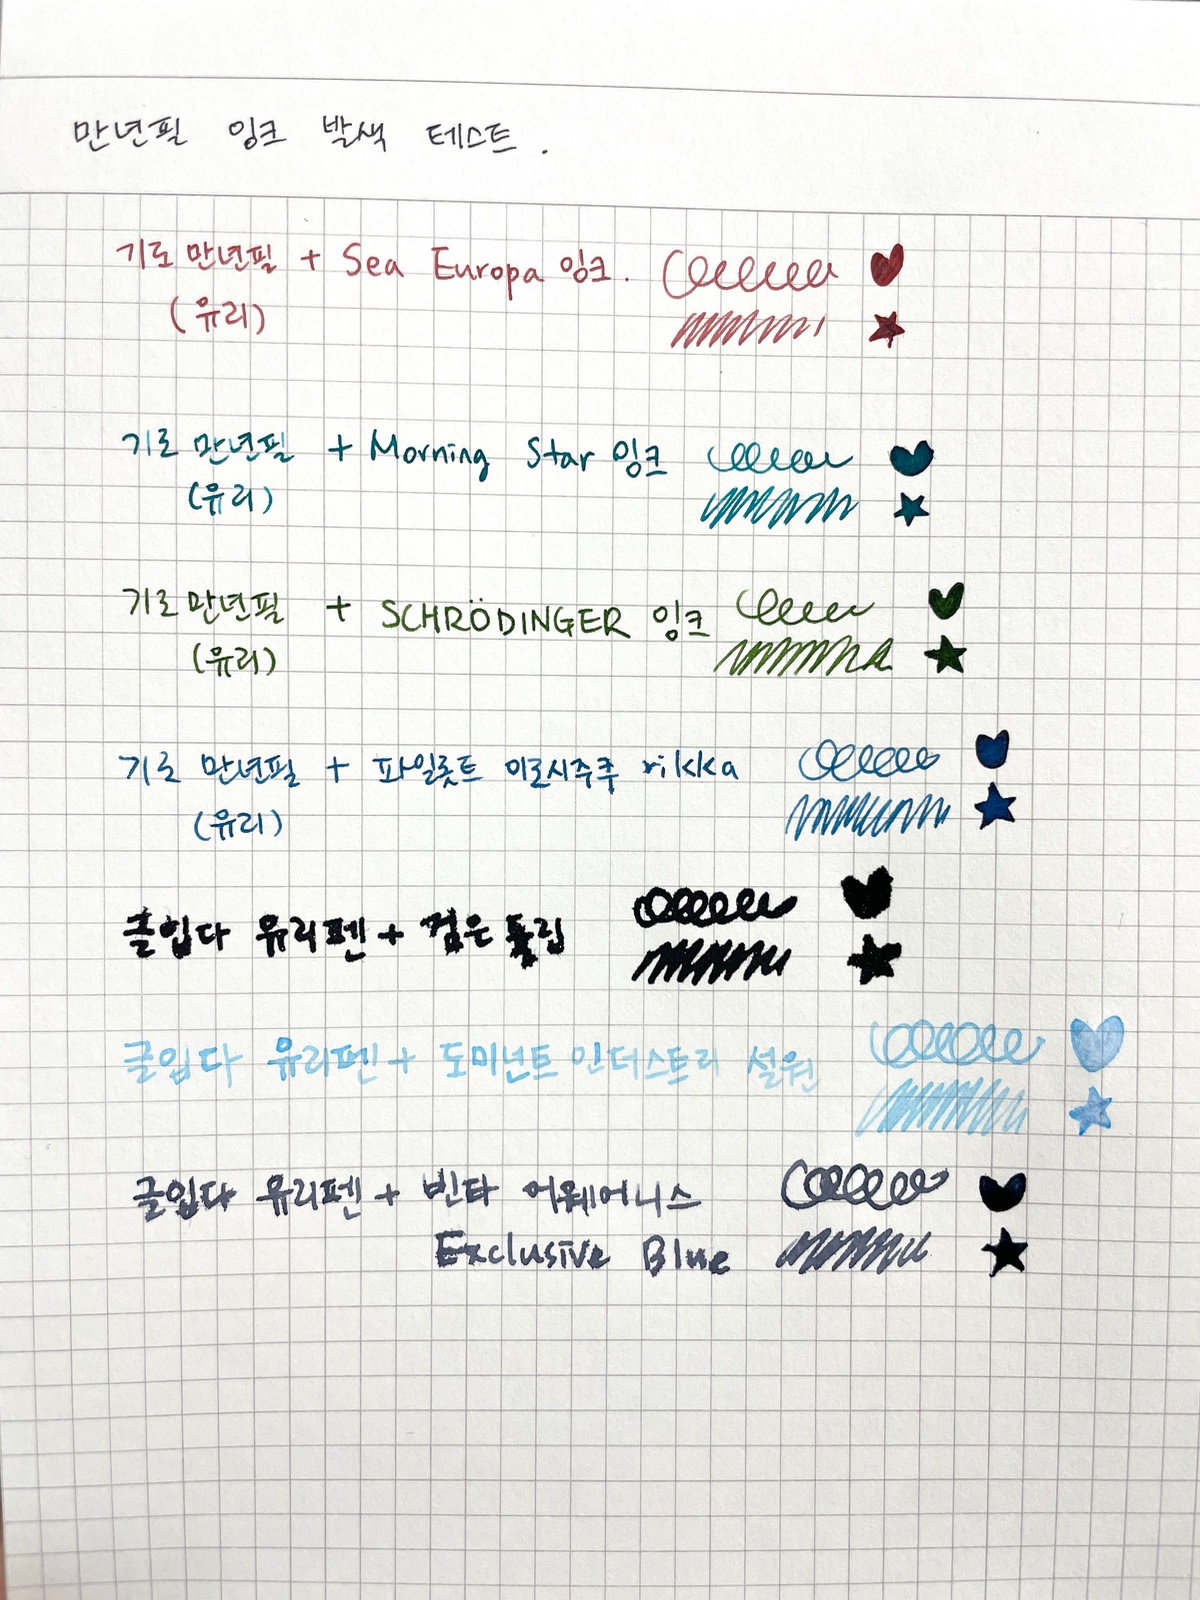 만년필 잉크 발색 테스트.
기로 만년필 + Sea Europa 잉크.
(유리)
기로 만년필 + Morning Star 잉크
(유리)
기로 만년필 + SCHRÖDINGER 잉크
(유리)
기로 만년필 + 파일롯트 이로시주쿠 rikka
(유리)
글입다 유리펜 + 검은 튤립
글입다 유리펜 + 도미넌트 인더스트리 설원
글입다 유리펜 + 빈타 어웨어니스
Exclusive Blue